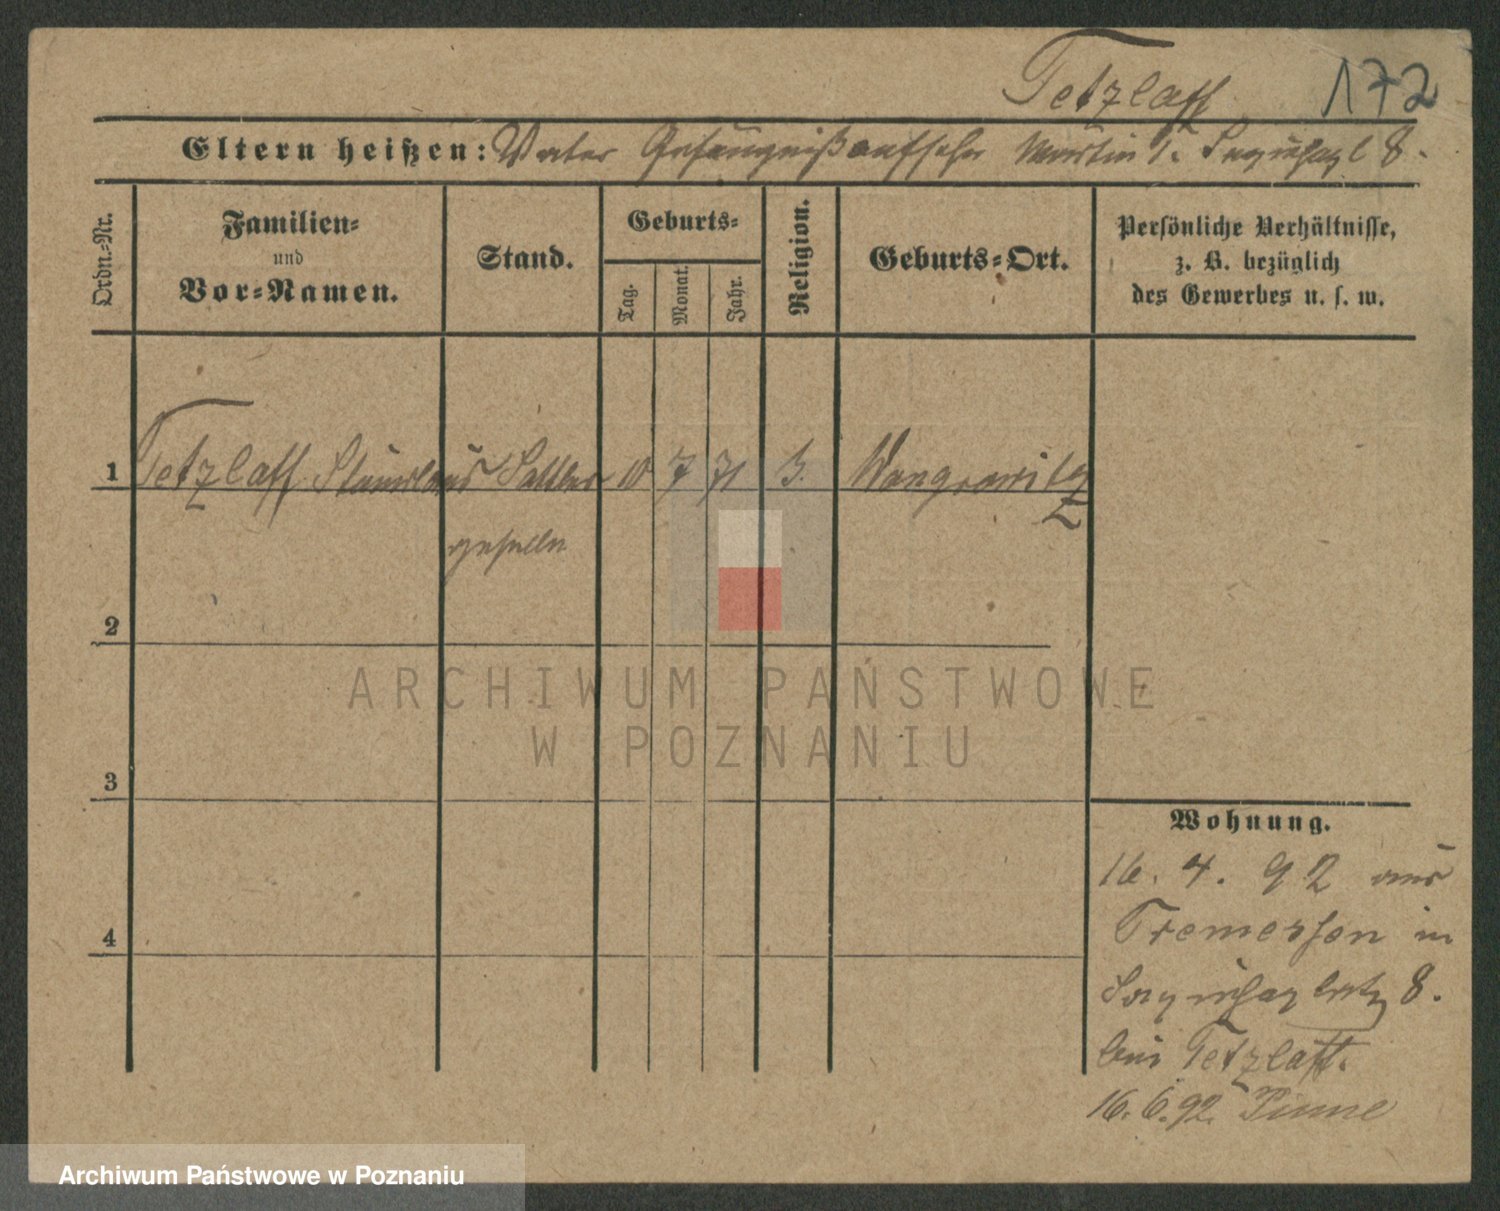 Tetzlaff 172
Eltern heißen: Vater Gefängnißaufseher Martin T. Sapiehapl 8.
Ordn.=Nr.
Familien=
und
Vor=Namen.
Stand.
Geburts=
Tag.
Monat.
Jahr.
Religion.
Geburts=Ort.
Persönliche Verhältnisse,
z. B. bezüglich
des Gewerbes u. s. w.
1 Tetzlaff Stanislaus Sattler 10 7 71 Wongrowitz
geselle
2
ARCHIWUM PAŃSTWOWE
W POZNANIU
3
Wohnung.
16. 4. 92 aus
4
Tremessen in
Sapiehaplatz 8.
bei Tetzlaff.
16. 6. 92. Pinne
Archiwum Państwowe w Poznaniu